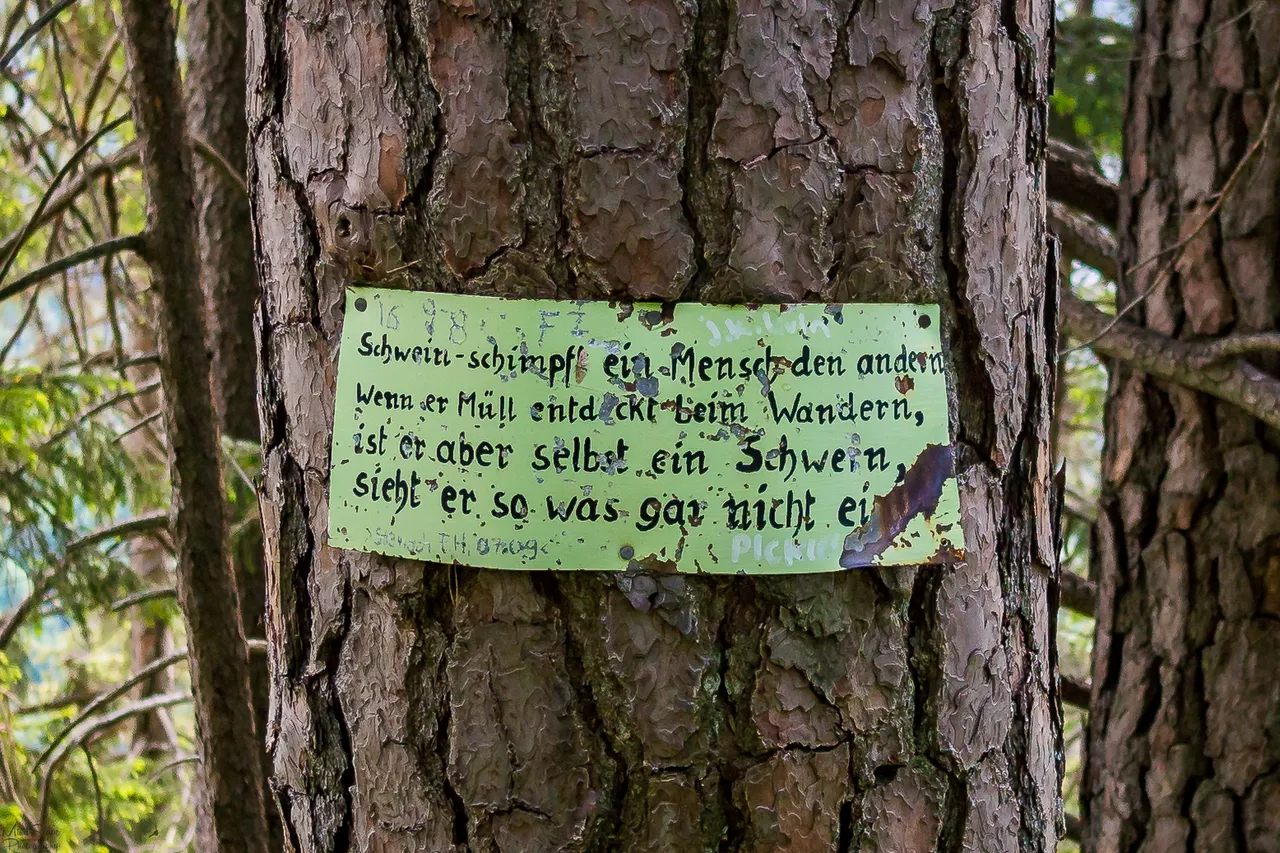 16 98 FZ
Schwein-schimpft ein Mensch den andern
Wenn er Müll entdeckt beim Wandern,
ist er aber selbst ein Schwein,
sieht er so was gar nicht ei
T.H.